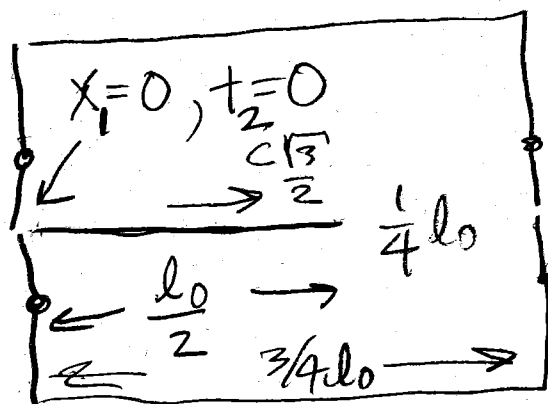 x₁=0, t₂=0
c √3/2
1/4 l₀
l₀/2
3/4 l₀